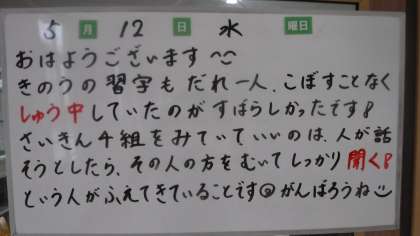 5月12日水曜日
おはようございます
きのうの習字もだれ一人、こぼすことなく
しゅう中していたのがすばらしかったです!
さいきん4組をみていていいのは、人が話
そうとしたら、その人の方をむいてしっかり聞く!
という人がふえてきていることです☺がんばろうね